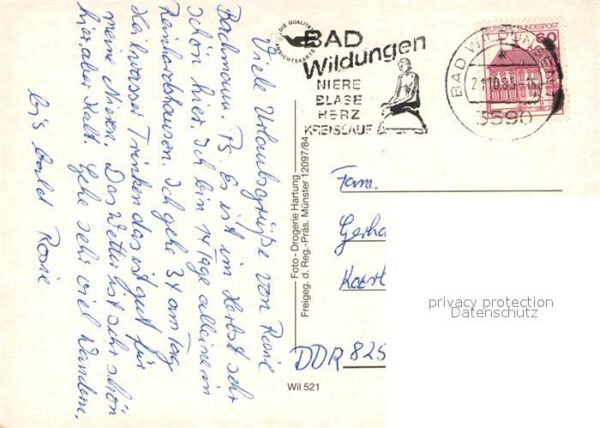 Viele Urlaubsgrüße von Rosie
Bachmann. Ps. Es ist im Herbst sehr
schön hier. Ich bin 14 Tage alleine in
Reinhardshausen. Ich gehe 3x am Tag
Heilwasser Trinken das ist gut für
meine Nieren. Das Wetter ist sehr schön
hier, aber kalt. Gehe sehr viel Wandern.
bis bald Rosie
DIE QUALITÄTS
ANSICHTSKARTE
BAD
Wildungen
NIERE
BLASE
HERZ
KREISLAUF
BAD WILDUNGEN
3590
DEUTSCHE BUNDESPOST
60
Foto - Drogerie Hartung
Freigeg. d. Reg.-Präs. Münster 12097/84
Wil 521
Fam.
Gerha
DDR 825
privacy protection
Datenschutz